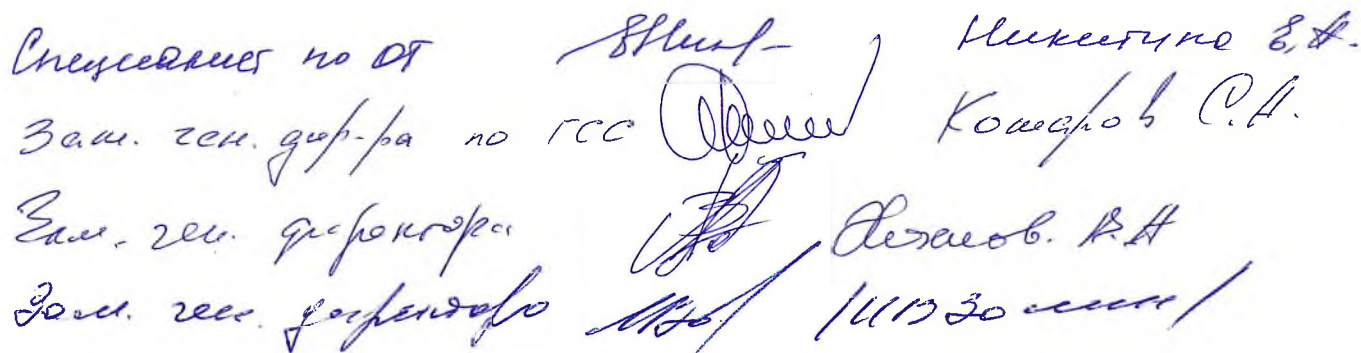 Специалист по ОТ Никитина Е.А.
Зам. ген. дир-ра по ГСС Комаров С.А.
Зам. ген. директора А.А
Зам. ген. директора